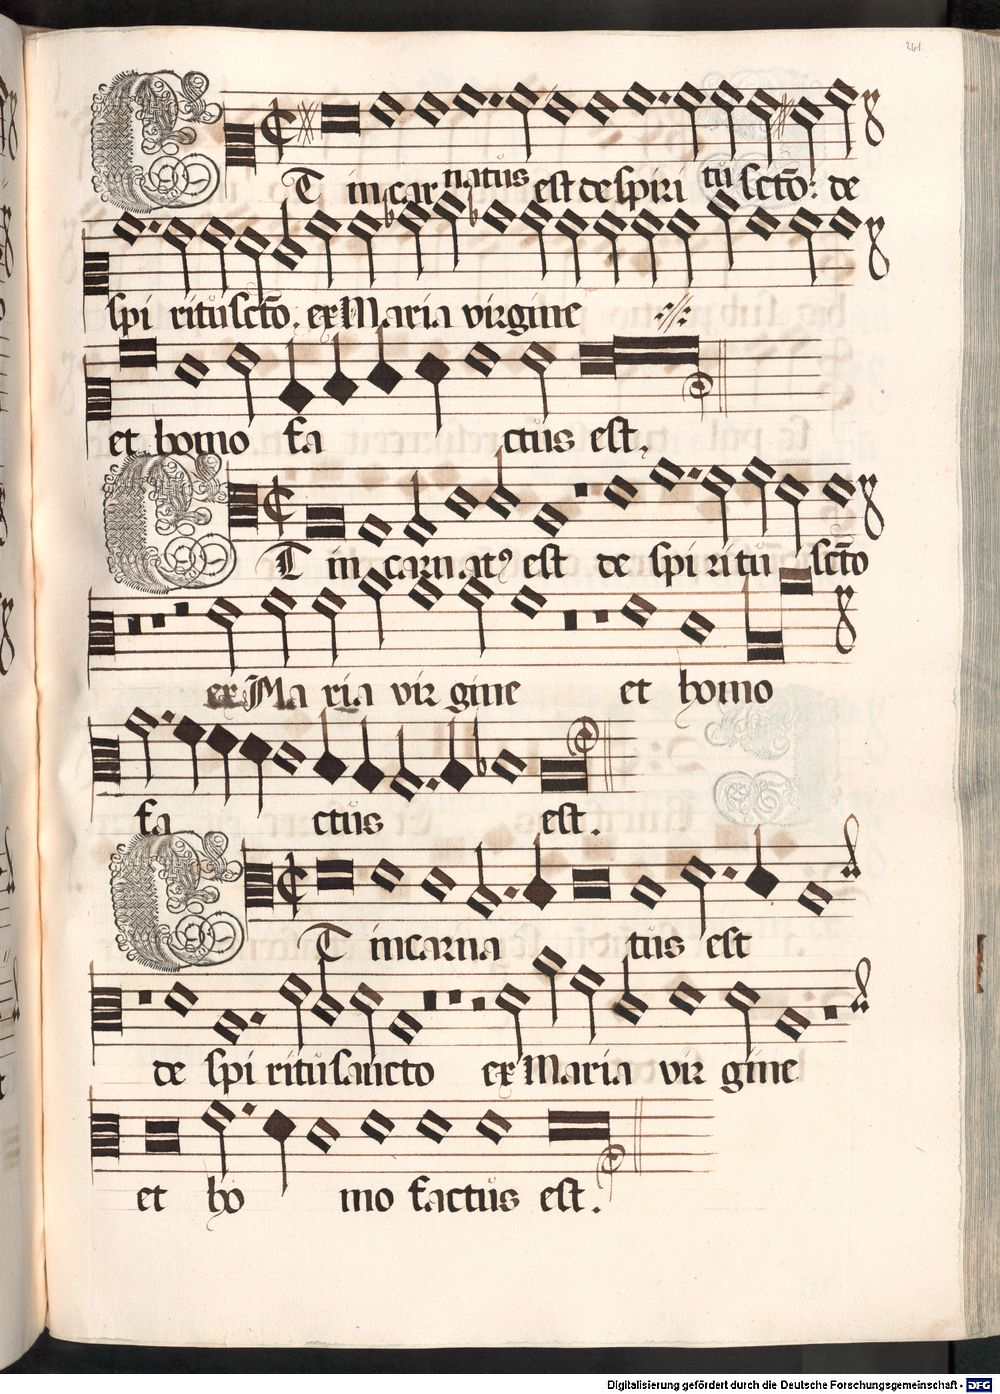 261
ET incarnatus est de spiri tu scto: de
spi ritu scto. ex Maria virgine
et homo fa ctus est.
ET in carnatꝰ est de spiritu scto
ex Ma ria vir gine et homo
fa ctus est.
ET incarna tus est
de spi ritu sancto ex Maria vir gine
et ho mo factus est.
Digitalisierung gefördert durch die Deutsche Forschungsgemeinschaft - DFG